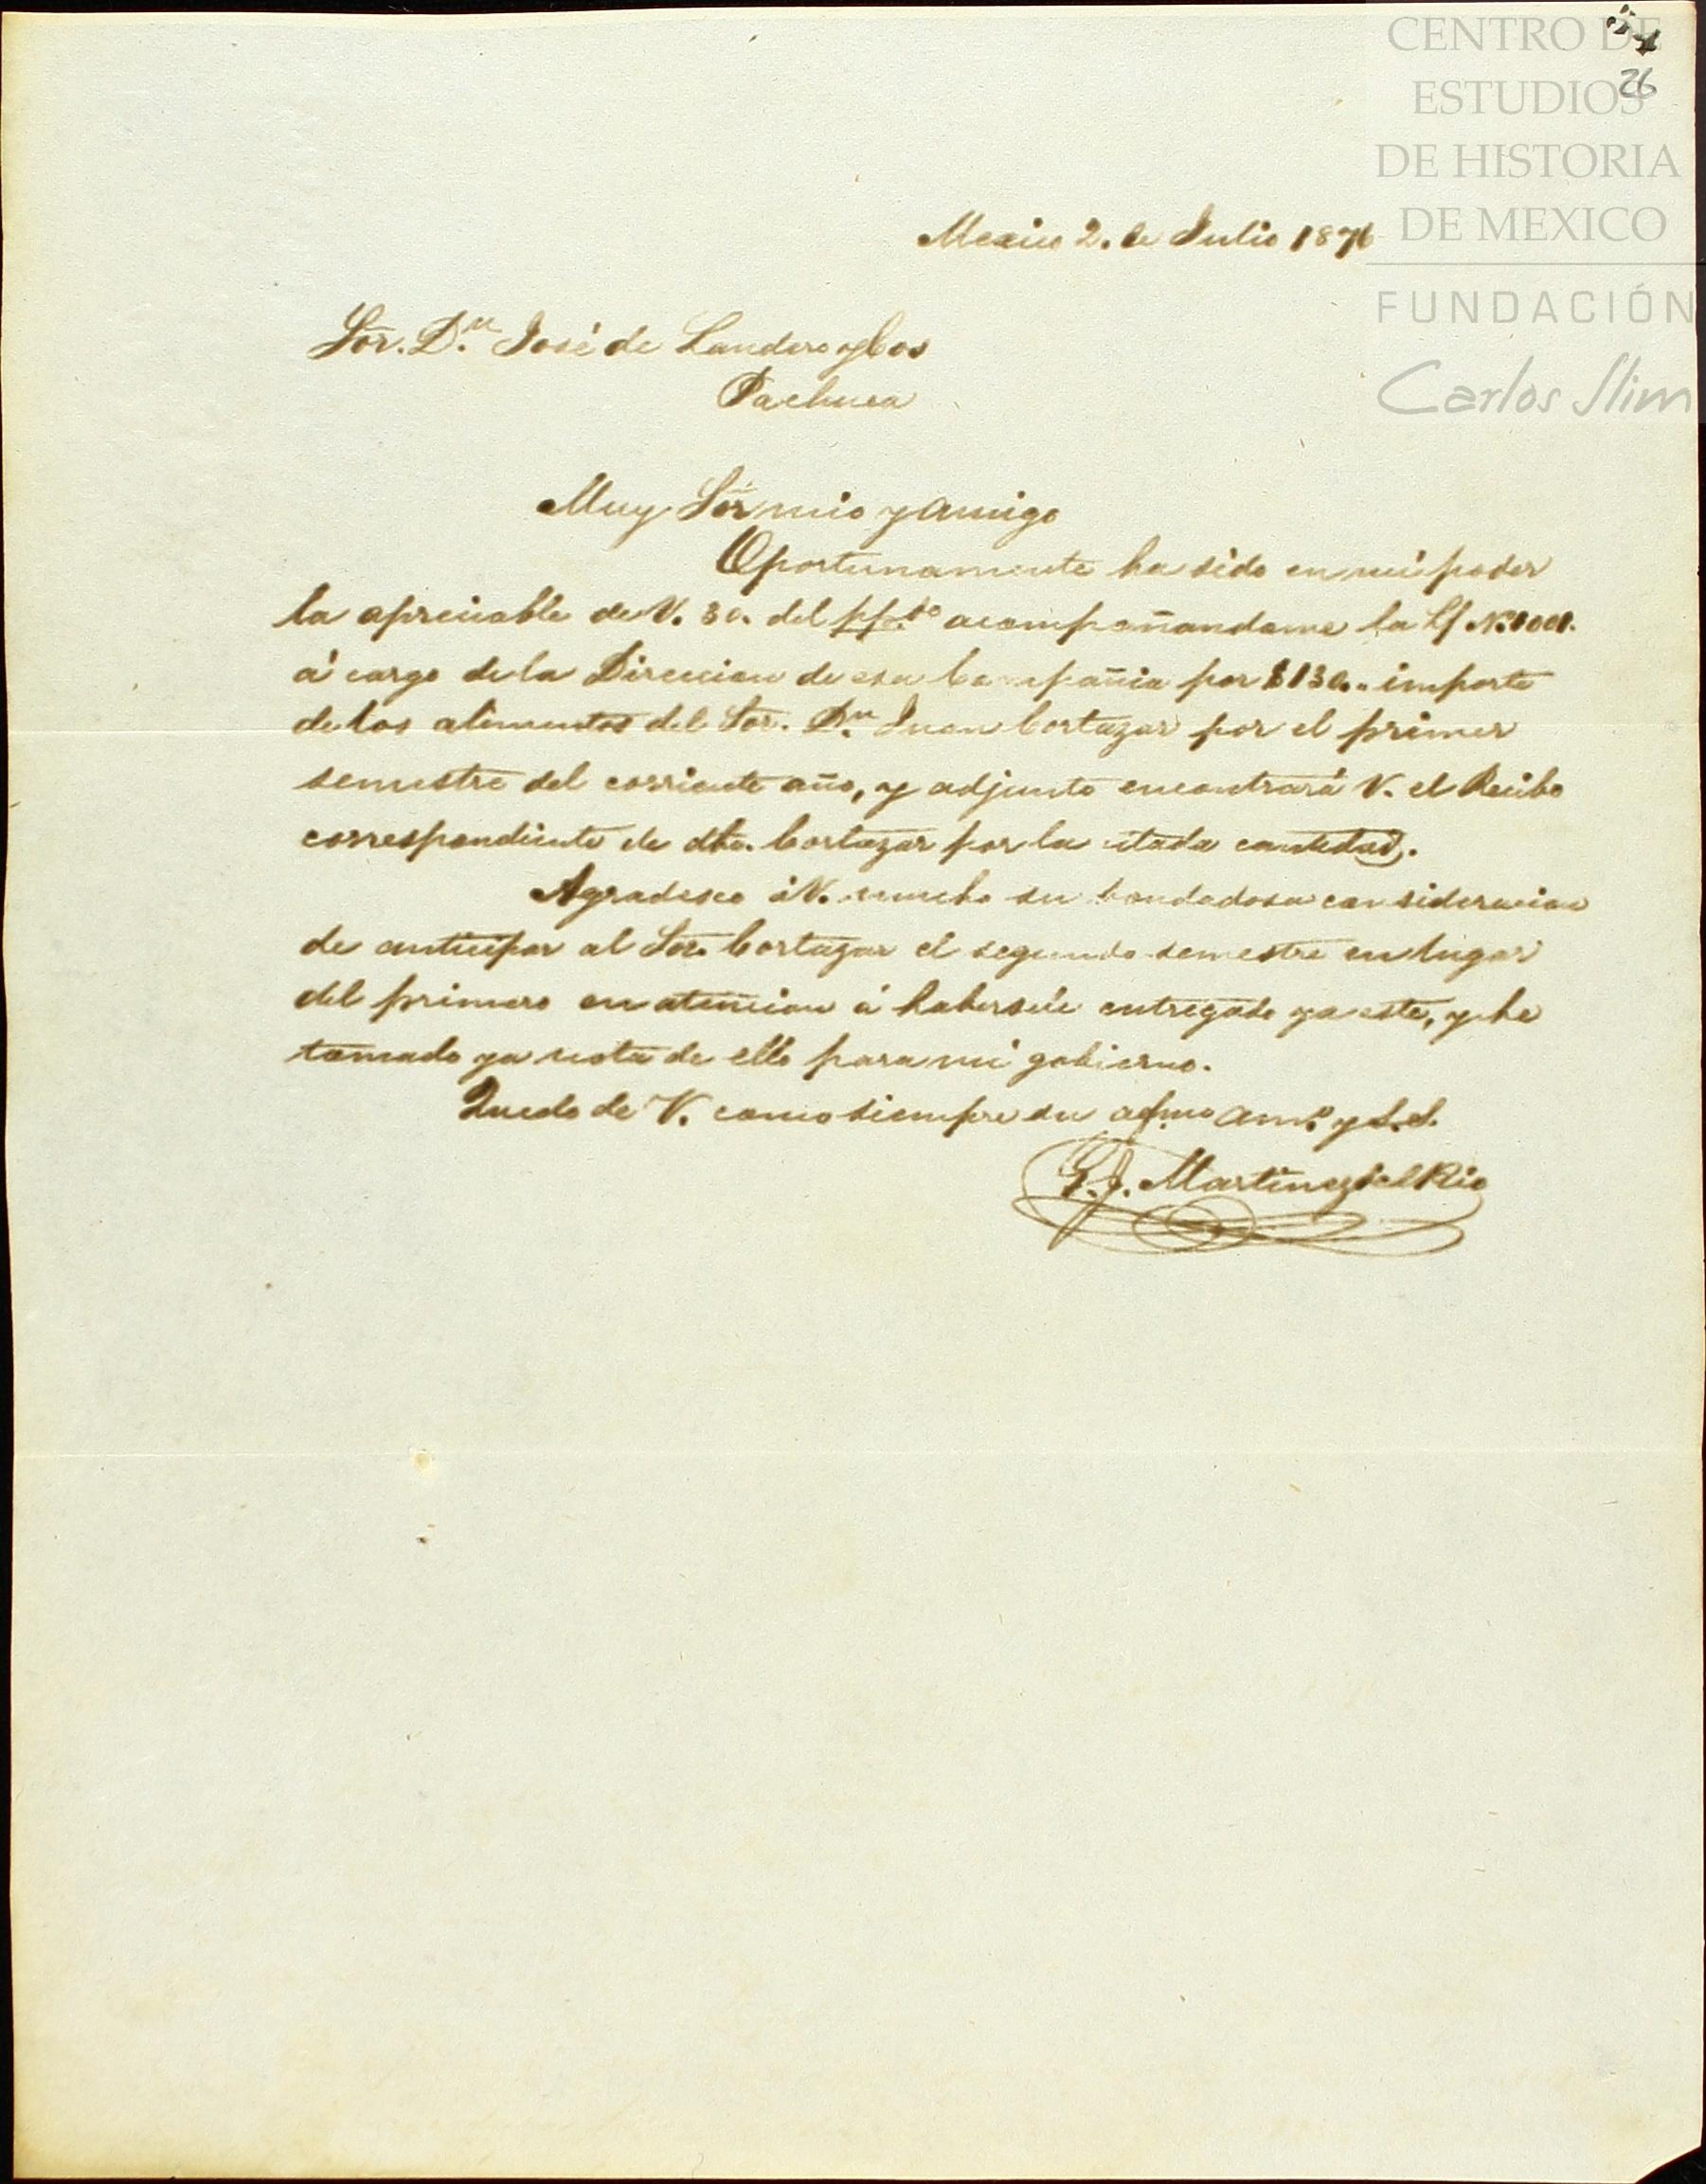 CENTRO DE
ESTUDIOS
DE HISTORIA
DE MEXICO
FUNDACIÓN
Carlos Slim
26
Mexico 2. de Julio 1876
Sor. Dn. José de Landero y Cos
Pachuca
Muy Sor mio y amigo
Oportunamente ha sido en mi poder
la apreciable de V. 30. del ppdo. acompañandome la
á cargo de la Direccion de esa Compañia por $130.. importe
de los alimentos del Sor. Dn. Juan Cortazar por el primer
semestre del corriente año, y adjunto encontrará V. el Recibo
correspondiente de dho. Cortazar por la citada cantidad.
Agradesco á V. mucho su bondadosa consideracion
de anticipar al Sor. Cortazar el segundo semestre en lugar
del primero en atencion á habersele entregado ya este, y he
tomado ya nota de ello para mi gobierno.
Quedo de V. como siempre su afmo amo. y S.S.
G. J. Martinez del Rio